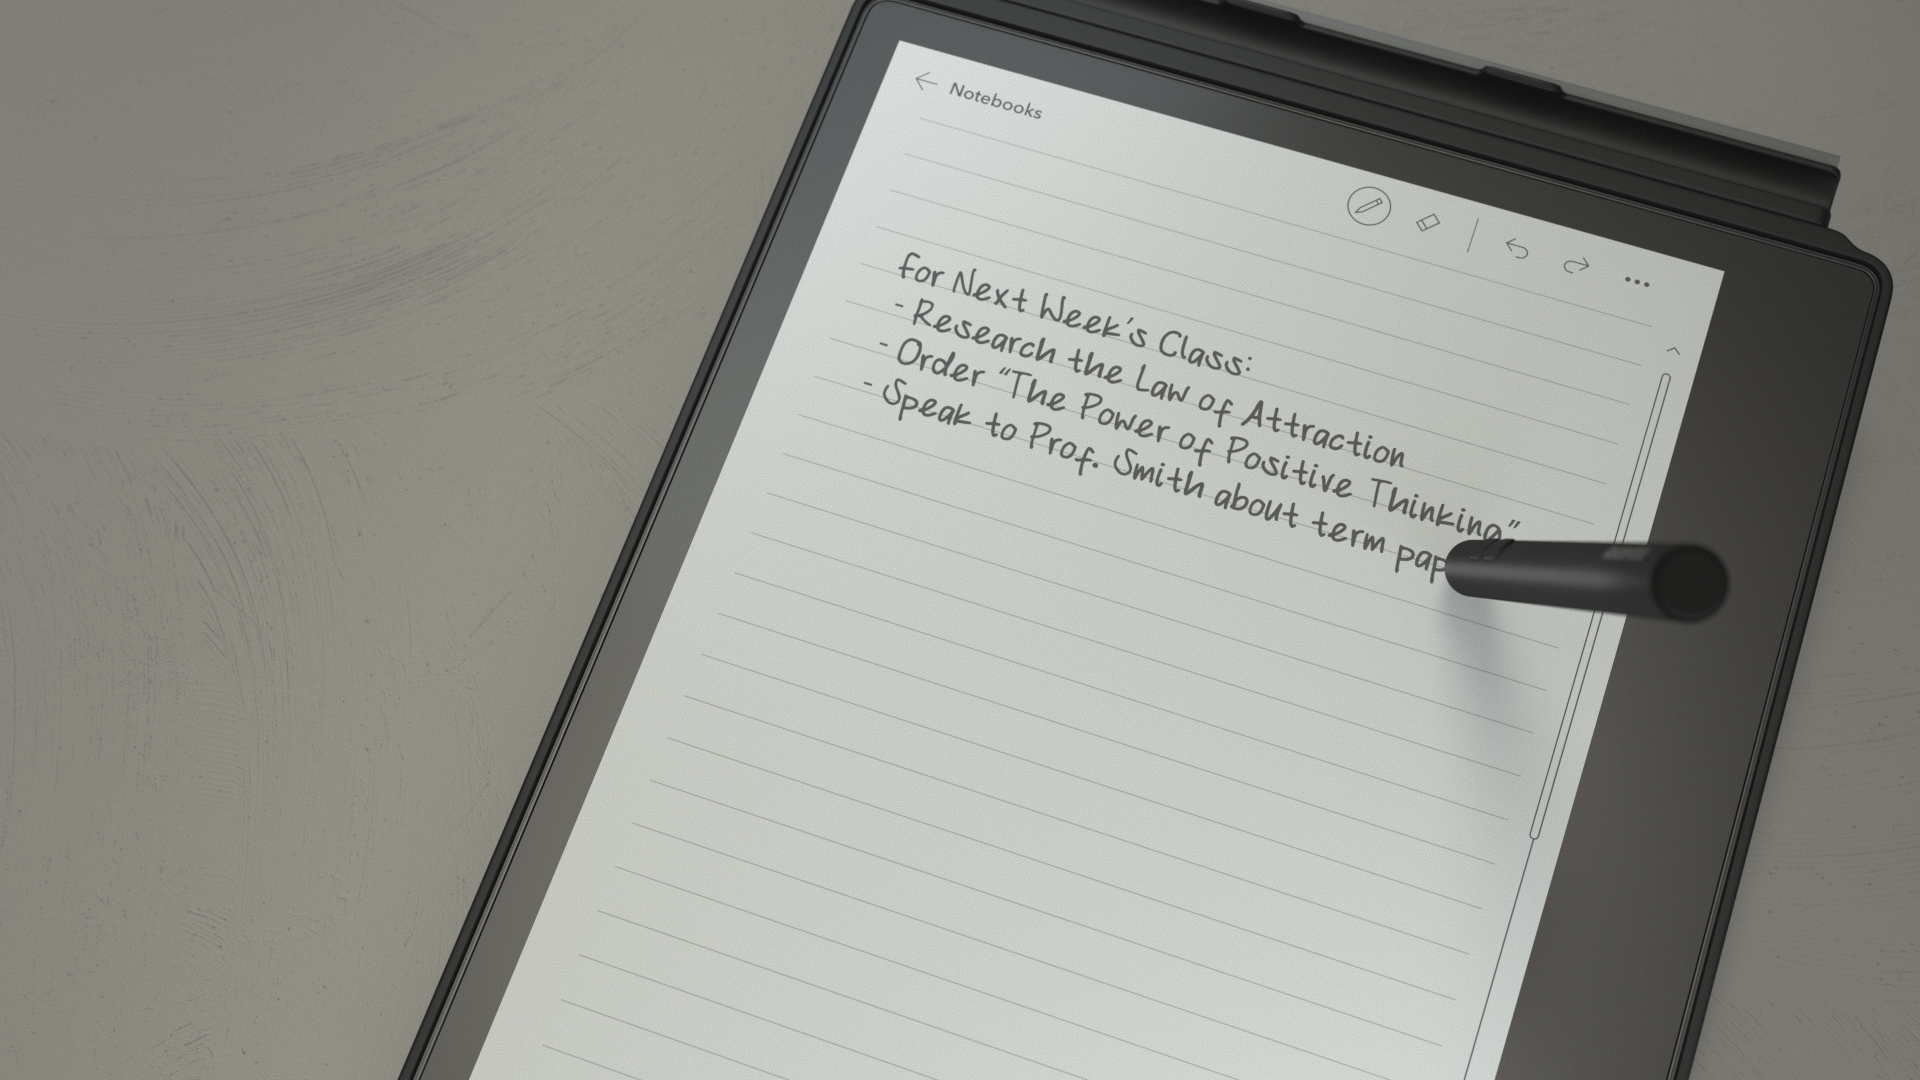 Notebooks
For Next Week's Class:
- Research the Law of Attraction
- Order "The Power of Positive Thinking"
- Speak to Prof. Smith about term pap